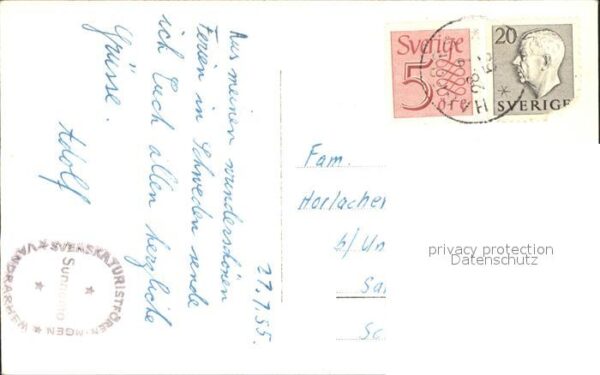 27.7.55.
Aus meinen wunderschönen
Ferien in Schweden sende
ich Euch allen herzliche
Grüsse.
Adolf
Sverige
5
ÖRE
20
SVERIGE
Fam.
Horlacher
b/Un
Sa
Sc
privacy protection
Datenschutz
SVENSKA TURISTFÖRENINGEN
VANDRARHEM